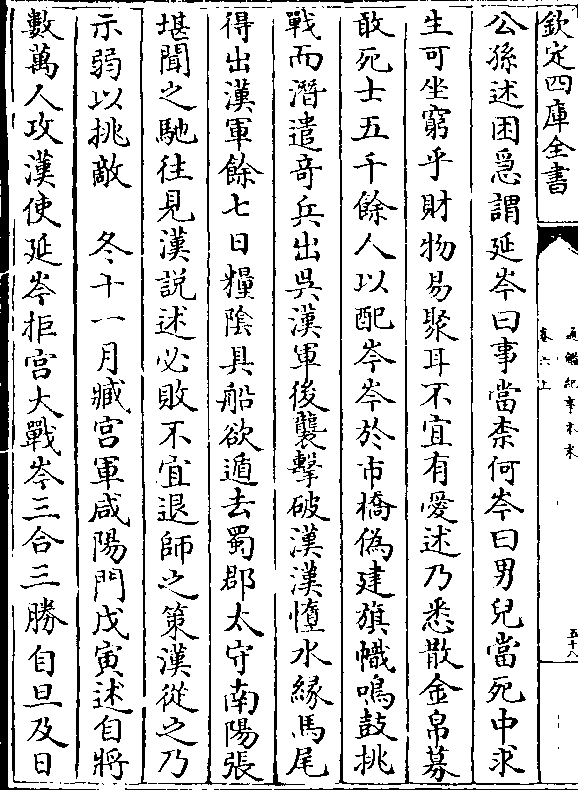 欽定四庫全書
通鑑紀事本末
卷六上
五十八
公孫述困急謂延岑曰事當柰何岑曰男兒當死中求
生可坐窮乎財物易聚耳不宜有愛述乃悉散金帛募
敢死士五千餘人以配岑岑於市橋偽建旗幟鳴鼓挑
戰而潛遣奇兵出吳漢軍後襲擊破漢漢墮水緣馬尾
得出漢軍餘七日糧陰具船欲遁去蜀郡太守南陽張
堪聞之馳往見漢說述必敗不宜退師之策漢從之乃
示弱以挑敵　冬十一月臧宮軍咸陽門戊寅述自將
數萬人攻漢使延岑拒宮大戰岑三合三勝自旦及日